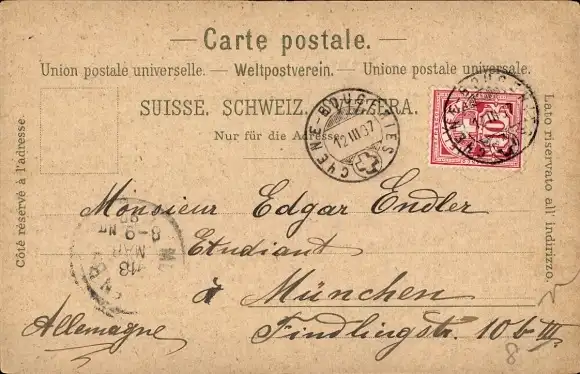 Carte postale.
Union postale universelle. — Weltpostverein. — Unione postale universale.
SUISSE. SCHWEIZ. SVIZZERA.
Nur für die Adresse
Côté réservé à l'adresse.
Lato riservato all' indirizzo.
CHÊNE-BOUGERIES
12 III 97
10
Monsieur Edgar Endler
Etudiant
à München
Allemagne Findlingstr. 10b III
13
MAR
8-9
8